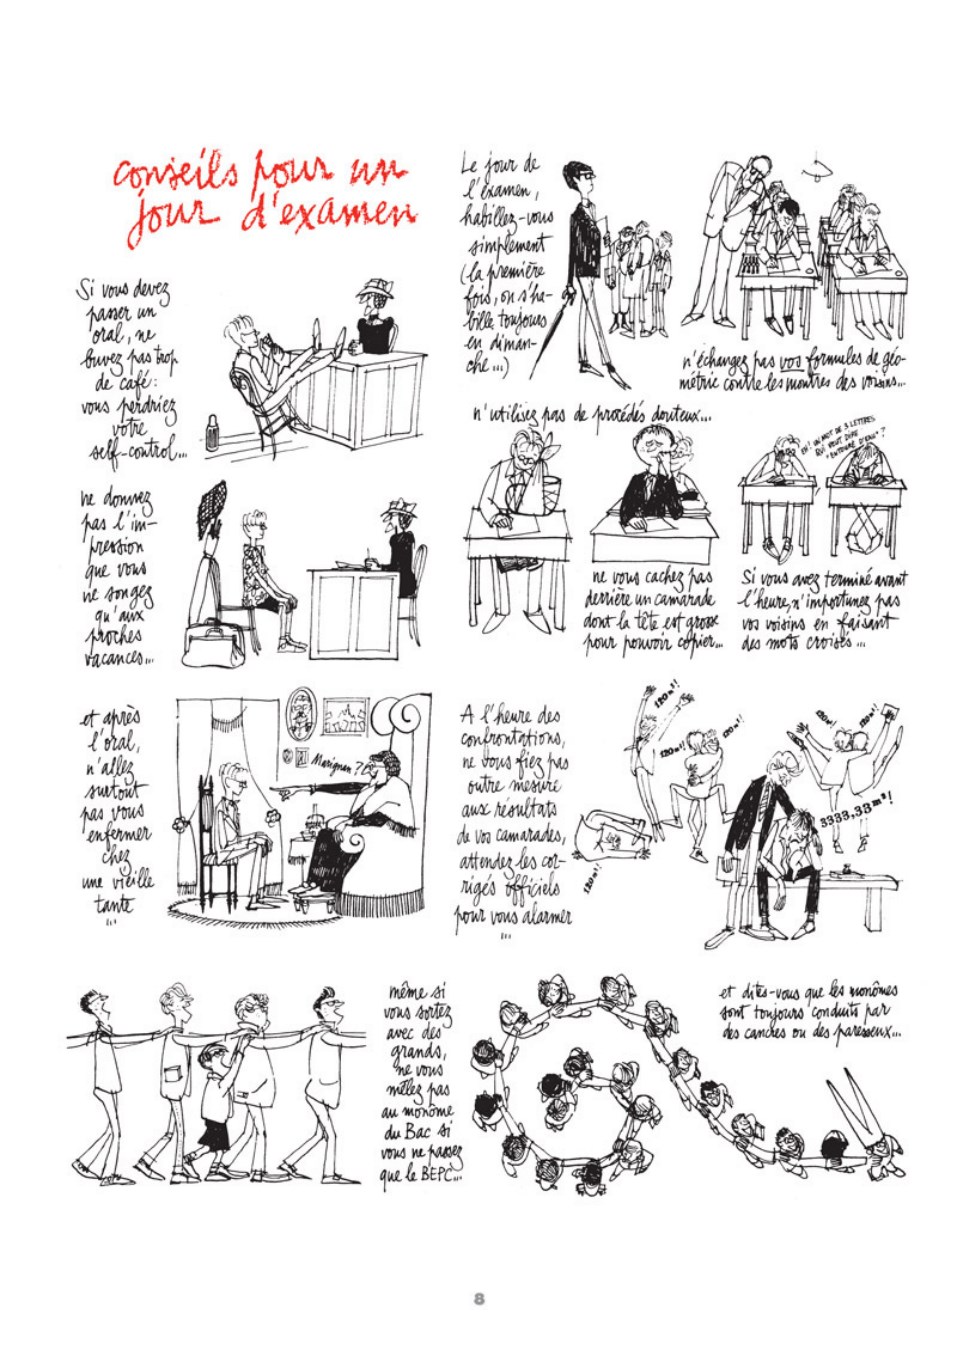 conseils pour un
jour d'examen
Si vous devez
passer un
oral, ne
buvez pas trop
de café :
vous perdriez
votre
self-control...
ne donnez
pas l'im-
pression
que vous
ne songez
qu'aux
proches
vacances...
et après
l'oral,
n'allez
surtout
pas vous
enfermer
chez
une vieille
tante
...
Marignan ?
Le jour de
l'examen,
habillez-vous
simplement
(la première
fois, on s'ha-
bille toujours
en diman-
che...)
n'échangez pas vos formules de géo-
métrie contre les montres des voisins...
n'utilisez pas de procédés douteux...
ne vous cachez pas
derrière un camarade
dont la tête est grosse
pour pouvoir copier...
EH ! UN MOT DE 3 LETTRES
QUI VEUT DIRE
"ENTOURÉ D'EAU" ?
Si vous avez terminé avant
l'heure, n'importunez pas
vos voisins en faisant
des mots croisés...
A l'heure des
confrontations,
ne vous fiez pas
outre mesure
aux résultats
de vos camarades,
attendez les cor-
rigés officiels
pour vous alarmer
...
120 m² !
120 m² !
120 m² !
120 m² !
120 m² !
120 m² !
3333,33 m² !
même si
vous sortez
avec des
grands,
ne vous
mêlez pas
au monôme
du Bac si
vous ne passez
que le BEPC...
et dites-vous que les monômes
sont toujours conduits par
des cancres ou des paresseux...
8